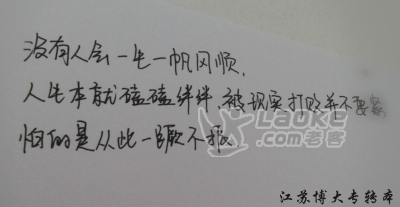 没有人会一生一帆风顺,
人生本就磕磕绊绊,被现实打败并不要紧
怕的是从此一蹶不振
LaoKe
老客
江苏博大专转本